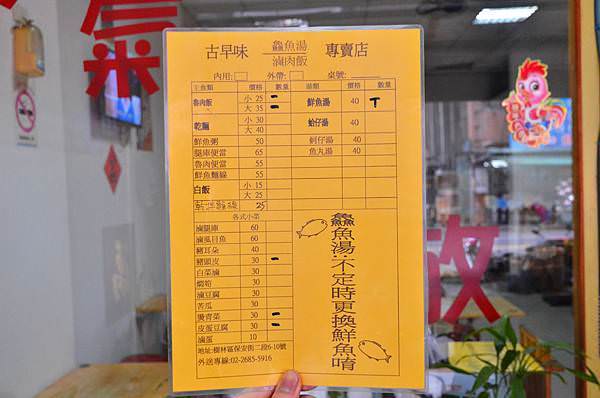 古早味 鱻魚湯 滷肉飯 專賣店
內用: 外帶: 桌號:
主食類 價格 數量 湯類 價格 數量
魯肉飯 小 25 一 鮮魚湯 40 T
大 35 一
乾麵 小 30 蛤仔湯 40
大 40
鮮魚粥 50 蚵仔湯 40
腿庫便當 65 魚丸湯 40
魯肉便當 55
鮮魚麵線 55
白飯 小 15
大 25
乾拌麵線 25
各式小菜
滷腿庫 60
滷虱目魚 60
豬耳朵 40
豬頭皮 30 一
白菜滷 30
滷豆腐 30
苦瓜 30
燙青菜 30 一
皮蛋豆腐 30 一
滷蛋 10
地址:樹林區保安街二段6-10號
外送專線:02-2685-5916
鱻魚湯:不定時更換鮮魚唷